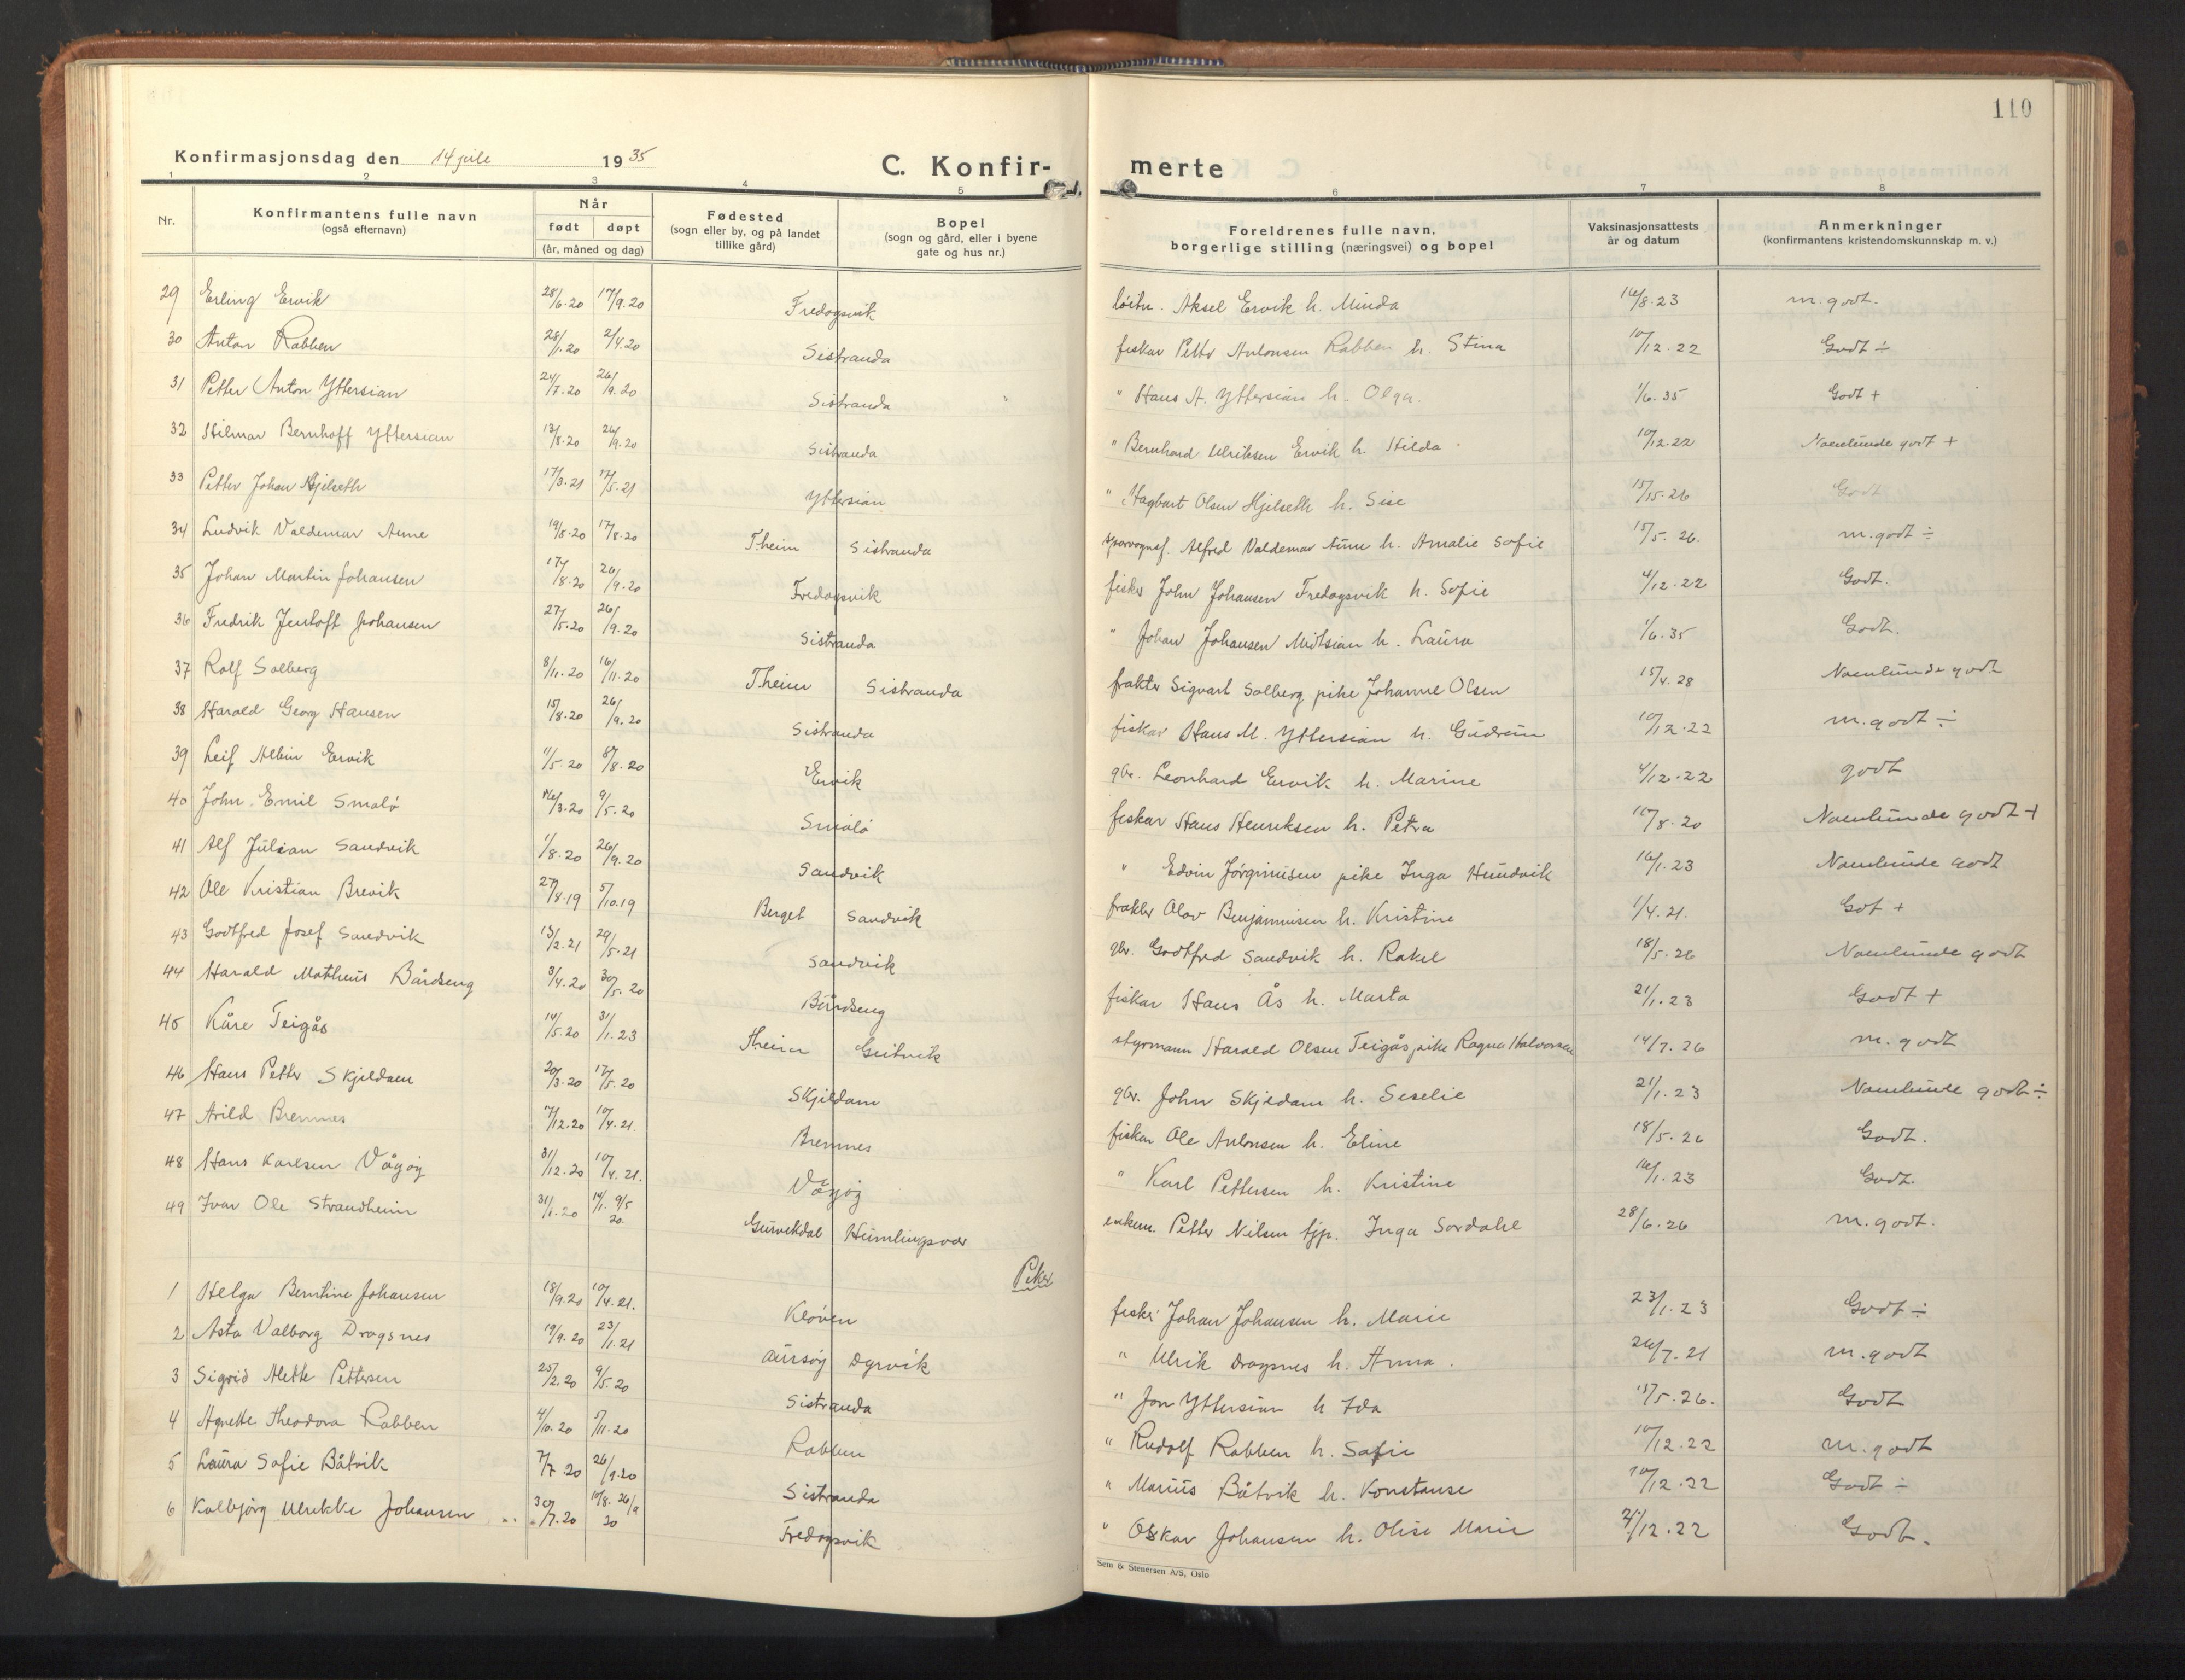 110
Konfirmasjonsdag den 14 juli 1935
C. Konfirmerte
1 2 3 4 5 6 7 8
Nr. Konfirmantens fulle navn (også efternavn) Når født døpt (år, måned og dag) Fødested (sogn eller by, og på landet tillike gård) Bopel (sogn og gård, eller i byene gate og hus nr.) Foreldrenes fulle navn, borgerlige stilling (næringsvei) og bopel Vaksinasjonsattests år og datum Anmerkninger (konfirmantens kristendomskunnskap m. v.)
29 Erling Ervik 28/6.20 17/9.20 Fredagsvik Aksel Ervik h. Minda 16/8.23 m. godt.
30 Anton Rabben 28/1.20 2/4.20 Sistranda fisker Petter Antonsen Rabben h. Stina 10/12.22 Godt ÷
31 Petter Anton Yttersian 24/7.20 26/9.20 Sistranda " Hans A. Yttersian h. Olga. 1/6.35 Godt +
32 Hilmar Bernhoff Yttersian 13/8.20 26/9.20 Sistranda " Bernhard Ulriksen Ervik h. Hilda 10/12.22 Noenlunde godt +
33 Petter Johan Hjelseth 17/3.21 17/5.21 Yttersian " Hagbart Olsen Hjelseth h. Sise 15/15.26 Godt
34 Ludvik Valdemar Aune 19/8.20 17/8.20 T.heim Sistranda Alfred Valdemar Aune h. Amalie Sofie 15/5.26. m. godt ÷
35 Johan Martin Johansen 17/8.20 26/9.20 Fredagsvik fisker John Johansen Fredagsvik h. Sofie 4/12.22 Godt.
36 Fredrik Jentoft Johansen 27/5.20 26/9.20 Sistranda " Johan Johansen Midtsian h. Laura 1/6.35 Godt.
37 Rolf Solberg 8/11.20 16/11.20 T.heim Sistranda frakter Sigvart Solberg pike Johanne Olsen 15/4.28 Noenlunde godt
38 Harald Georg Hansen 15/8.20 26/9.20 Sistranda fisker Hans M. Yttersian h. Gudrun 10/12.22 m. godt ÷
39 Leif Albin Ervik 11/5.20 8/8.20 Ervik gbr. Leonhard Ervik h. Marine 4/12.22 godt
40 John Emil Smalø 16/3.20 9/5.20 Smalø fisker Hans Henriksen h. Petra 10/8.20 Noenlunde godt +
41 Alf Julian Sandvik 1/8.20 26/9.20 Sandvik " Edvin Jørginusen pike Inga Hundvik 16/1.23 Noenlunde godt
42 Ole Kristian Brevik 27/8.19 5/10.19 Berget Sandvik frakter Olav Benjaminsen h. Kristine 1/4.21. Got +
43 Godtfred Josef Sandvik 13/2.21 29/5.21 Sandvik gbr. Godtfred Sandvik h. Rakel 18/5.26 Noenlunde godt
44 Harald Matheus Bårdseng 3/4.20 30/5.20 Bårdseng fisker Hans Ås h. Marta 21/1.23 Godt +
45 Kåre Teigås 14/5.20 31/1.23 T.heim Geitvik styrmann Harald Olsen Teigås pike Ragna Halvorsen 14/7.26 m. godt
46 Hans Petter Skjeldam 20/3.20 17/5.20 Skjeldam gbr. John Skjeldam h. Seselie 21/1.23 Noenlunde godt ÷
47 Arild Bremnes 7/12.20 10/4.21. Bremnes fisker Ole Antonsen h. Eline 18/5.26 Godt.
48 Hans Karlsen Vågøy 31/12.20 10/4.21. Vågøy " Karl Pettersen h. Kristine 16/1.23 Godt.
49 Ivar Ole Strandheim 31/1.20 9/5 20. Gurvikdal Humlingsvær enkem. Petter Nilsen tjp. Inga Sordahl 28/6.26 m. godt.
Piker
1 Helga Berntine Johansen 18/9.20 10/4.21. Kløven fisker Johan Johansen h. Marie 23/1.23 Godt ÷
2 Asta Valborg Dragsnes 19/9.20 23/1.21 Aursøy Dyrvik " Ulrik Dragsnes h. Anna. 26/7.21 m. godt
3 Sigrid Alette Pettersen 25/2.20 9/5.20 Sistranda " Jon Yttersian h Ida 15/5.26. Godt
4 Agnette Theodora Rabben 4/10.20 5/11.20 Rabben " Rudolf Rabben h. Sofie 10/12.22 m. godt
5 Laura Sofie Båtvik 7/7.20 26/9.20 Sistranda " Marius Båtvik h. Konstanse 10/12.22 Godt ÷
6 Kolbjørg Ulrikke Johansen 30/7.20 10/8. 26/9 20 Fredagsvik " Oskar Johansen h. Olise Marie 21/12.22 Godt.
Sem & Stenersen A/S, Oslo